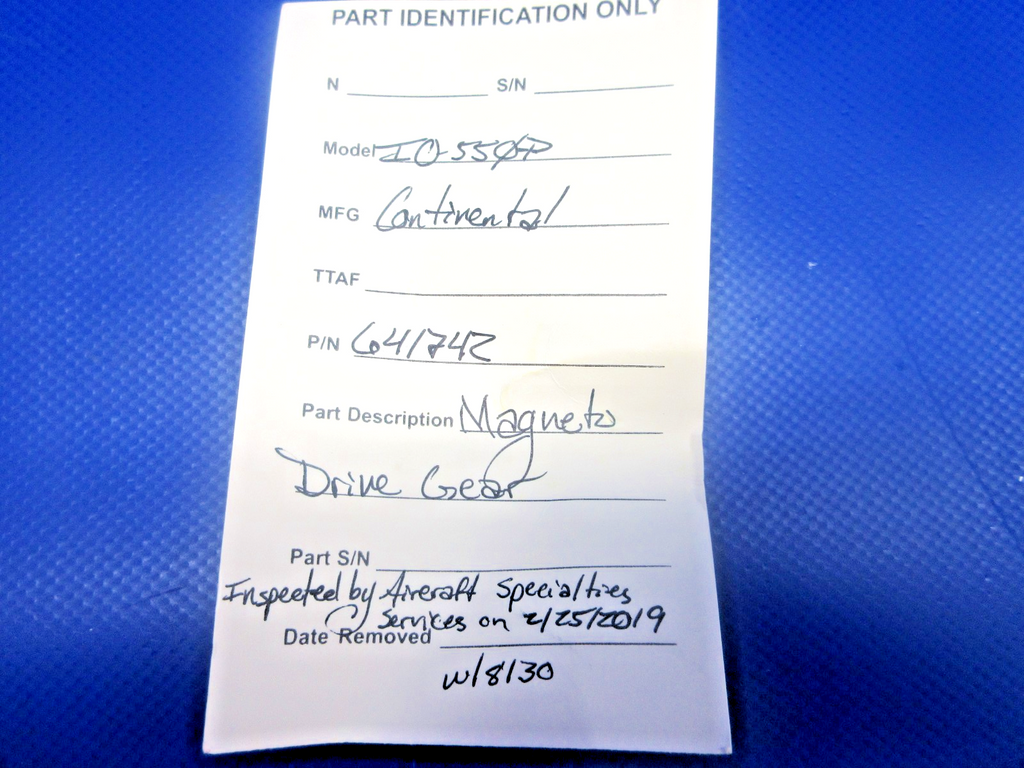 PART IDENTIFICATION ONLY
N S/N
Model IO-550P
MFG Continental
TTAF
P/N 641742
Part Description Magneto
Drive Gear
Part S/N
Inspected by Aircraft Specialties
Services on 2/25/2019
Date Removed
w/8130